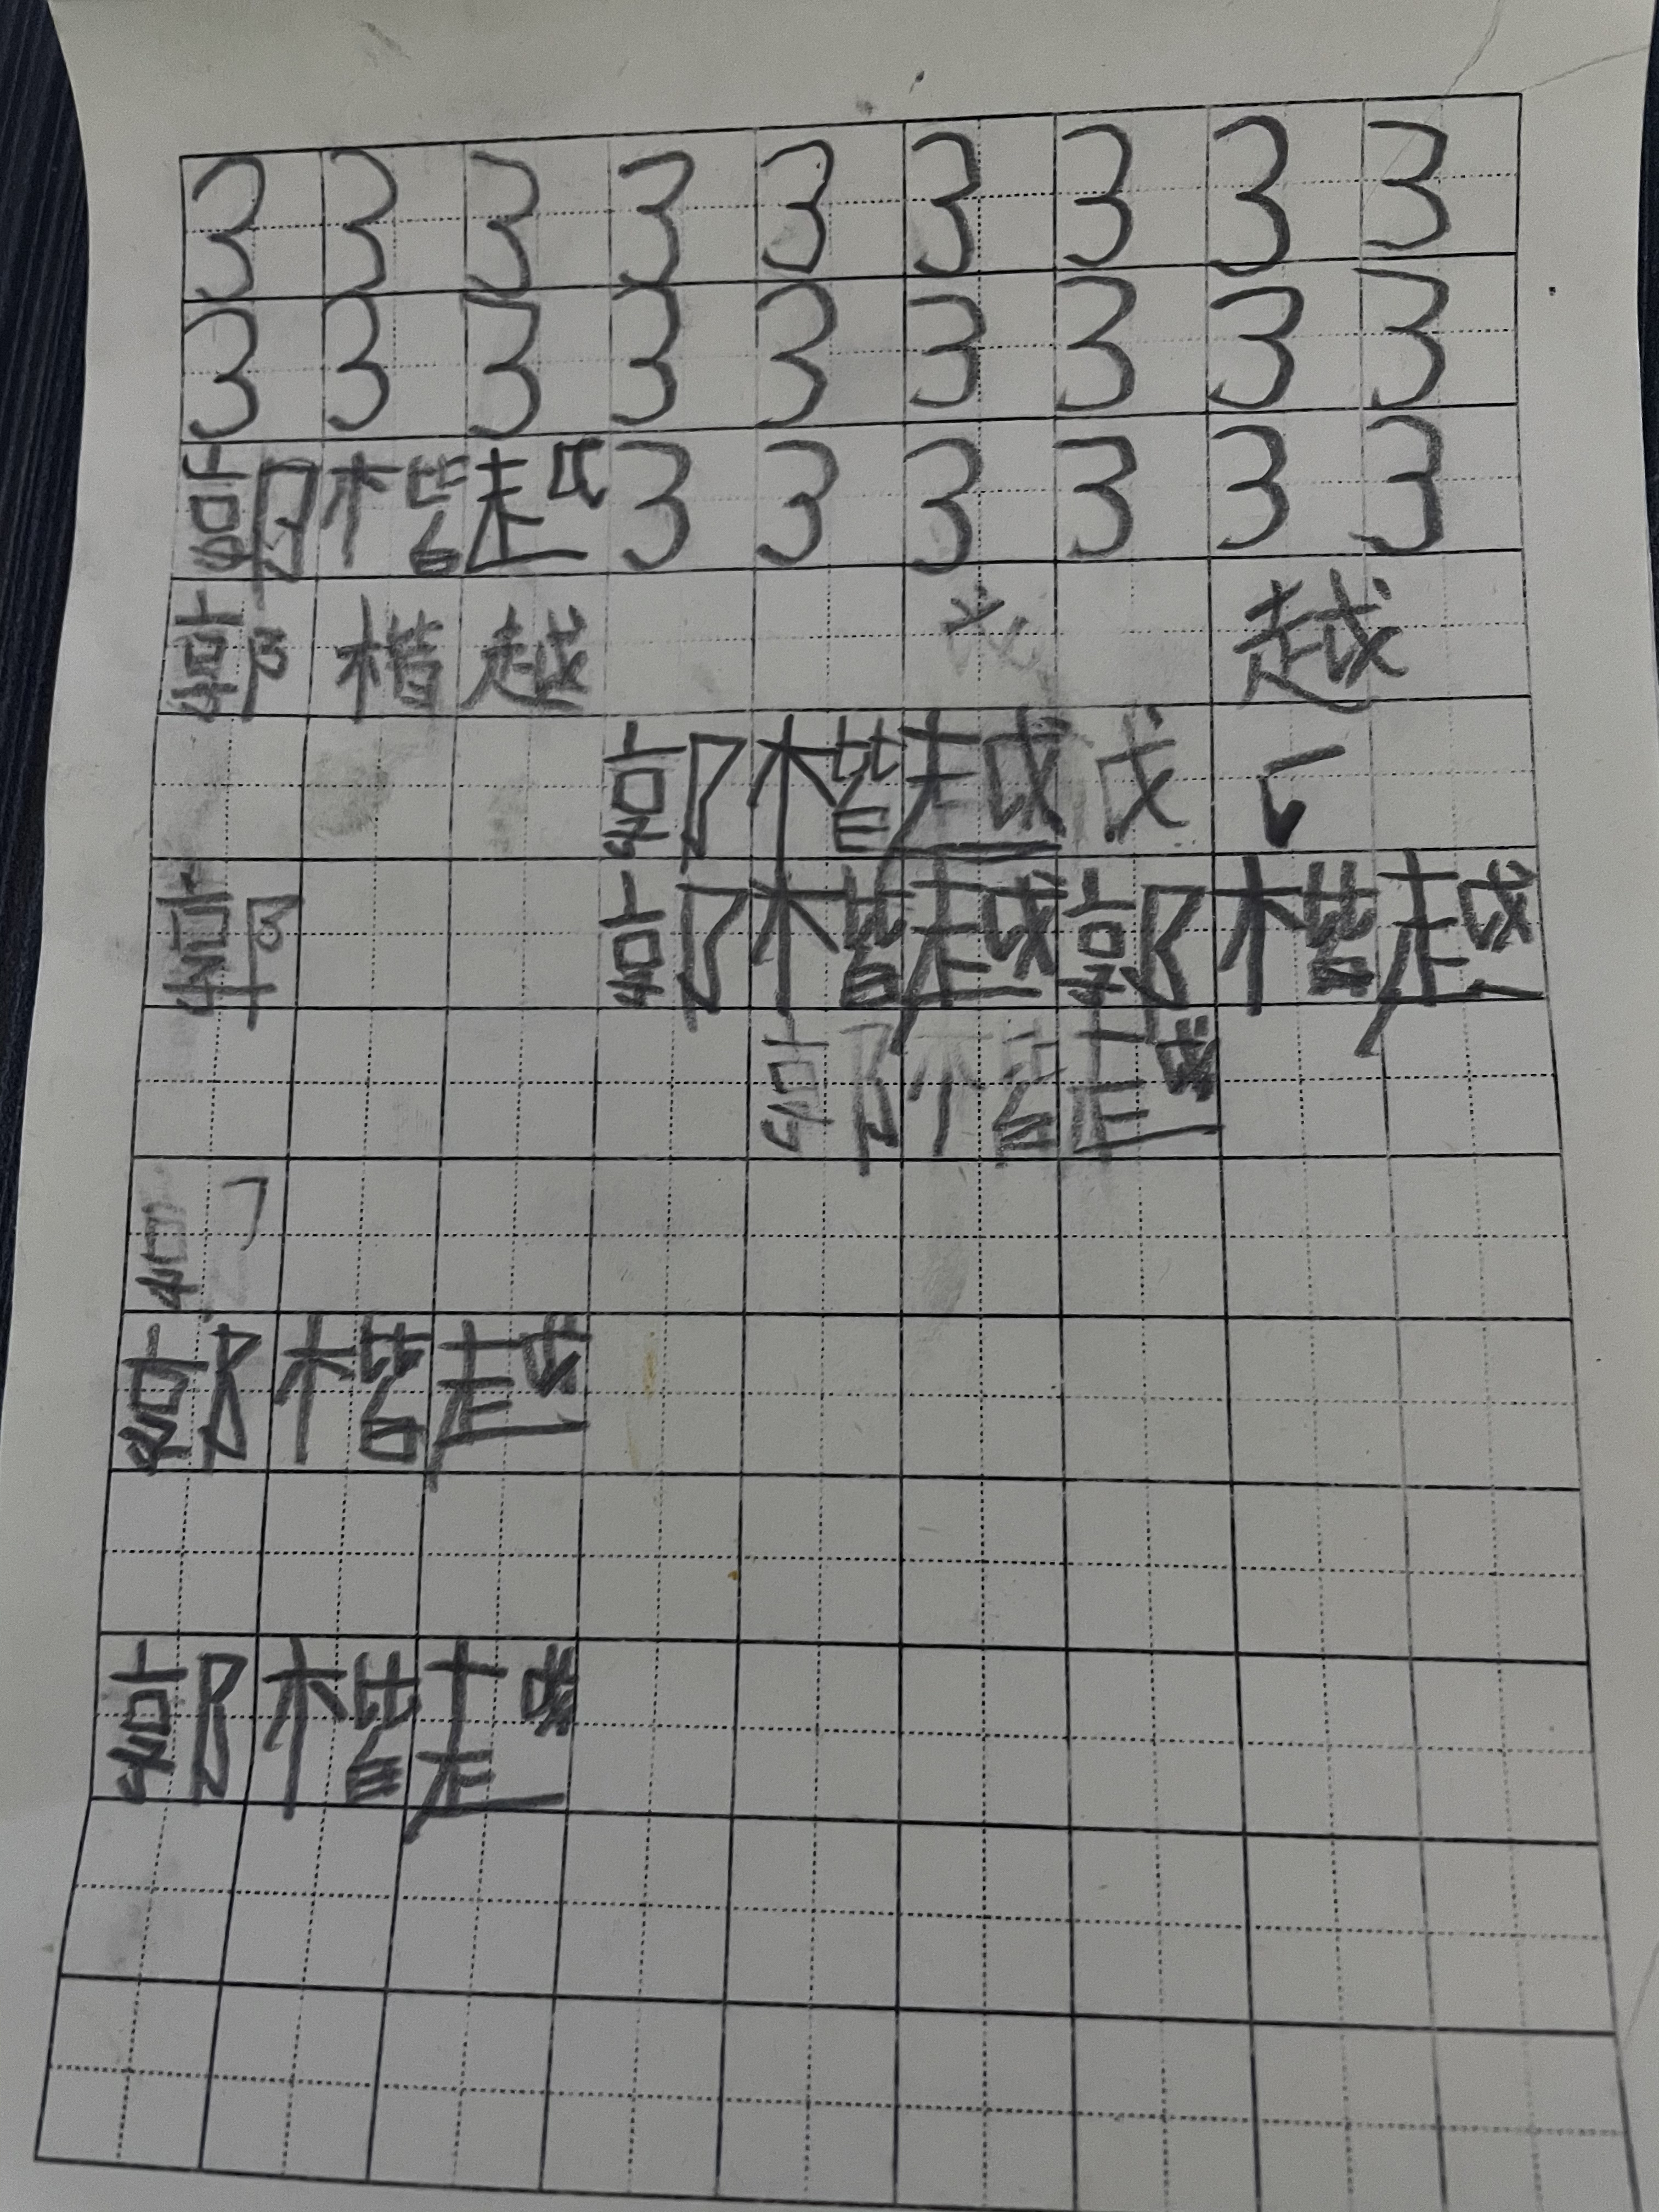 3 3 3 3 3 3 3 3 3
3 3 3 3 3 3 3 3 3
郭 楷 越 3 3 3 3 3 3
郭 楷 越 越
郭 楷 越 戉
郭 郭 楷 越 郭 楷 越
郭 楷 越
郭 楷 越
郭 楷 越